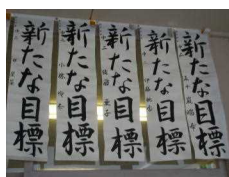 新たな目標
新たな目標
新たな目標
新たな目標
新たな目標